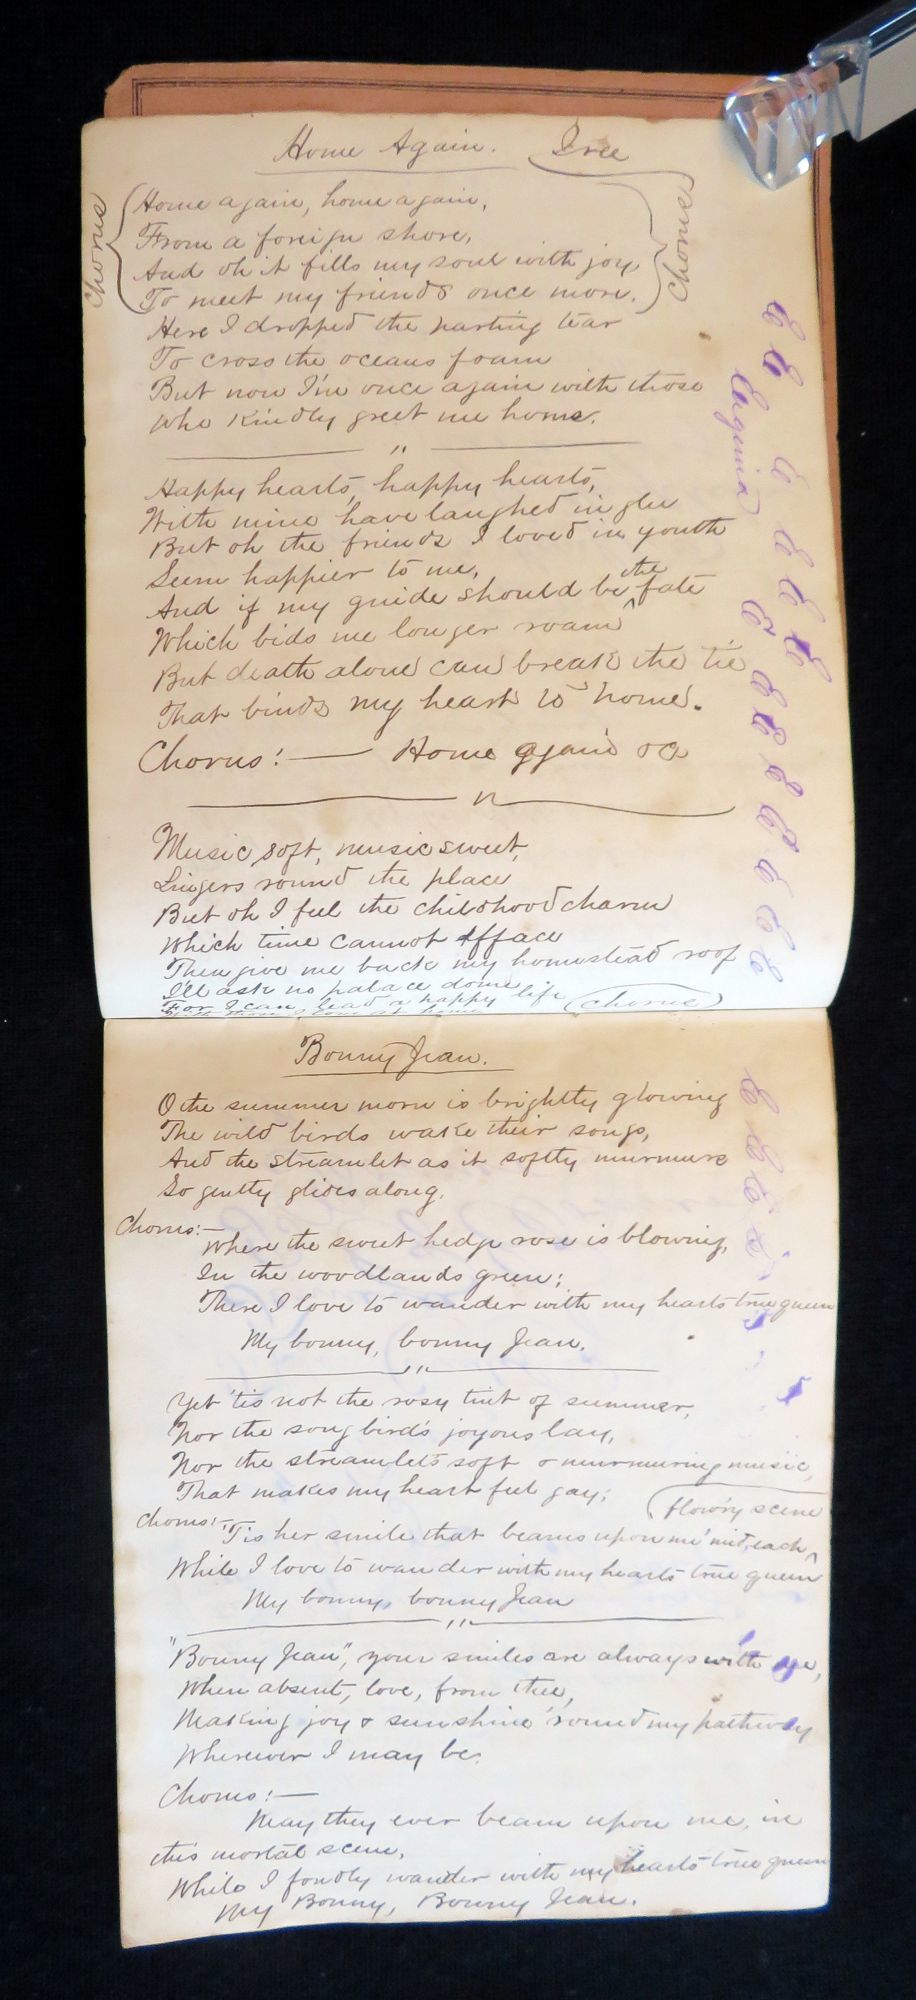 Home Again.
Chorus
Home again, home again,
From a foreign shore,
And oh it fills my soul with joy
To meet my friends once more.
Chorus
Here I dropped the parting tear
To cross the oceans foam
But now I'm once again with those
Who Kindly greet me home.
Happy hearts, happy hearts,
With mine have laughed in glee
But oh the friends I loved in youth
Seem happier to me,
And if my guide should be the fate
Which bids me longer roam
But death alone can break the tie
That binds my heart to home.
Chorus:— Home again
Music soft, music sweet,
Lingers round the place
But oh I feel the childhood charm
Which time cannot efface
Then give me back my homestead roof
I'll ask no palace dome
For I can lead a happy life (chorus)
E E
Eugenia
E E E E
E E E E E E E E
Bonny Jean.
O the summer morn is brightly glowing
The wild birds wake their songs,
And the streamlet as it softly murmurs
So gently glides along.
Chorus:—
Where the sweet hedge rose is blowing,
In the woodlands green;
There I love to wander with my hearts true queen
My bonny, bonny Jean.
Yet 'tis not the rosy tint of summer,
Nor the song bird's joyous lay,
Nor the streamlet's soft & murmuring music,
That makes my heart feel gay;
Chorus:— 'Tis her smile that beams upon me 'mid each flow'ry scene
While I love to wander with my hearts true queen
My bonny, bonny Jean
"Bonny Jean", your smiles are always with me,
When absent, love, from thee,
Making joy & sunshine 'round my pathway
Wherever I may be.
Chorus:—
May they ever beam upon me, in
this mortal scene,
While I fondly wander with my hearts true queen
My Bonny, Bonny Jean.
E E E E